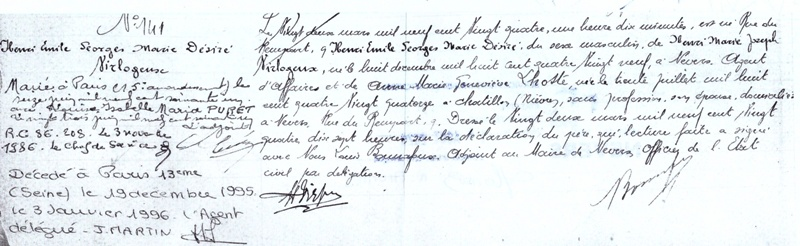 N° 141
Henri Emile Georges Marie Désiré
Nizlogeux
Marié à Paris 15e (arrondissement) le
seize juin
avec Isabelle Maria PURET
vingt trois juin mil neuf cent
R.C. 86. 208. le 3 novembre
1986. Le chef de Service
Décédé à Paris 13eme
(Seine) le 19 décembre 1995.
le 3 Janvier 1996. L'Agent
délégué - J. MARTIN
Le Vingt deux mars mil neuf cent Vingt quatre, une heure dix minutes, est né Rue du
Rempart, 9 Henri Emile Georges Marie Désiré, du sexe masculin, de Henri Marie Joseph
Nizlogeux, né le huit décembre mil huit cent quatre Vingt neuf, à Nevers. Agent
d'affaires et de Anne Marie Lhoste née le trente juillet mil huit
cent quatre Vingt quatorze à Chatillon (Nièvre), sans profession, son épouse, domiciliés
à Nevers, Rue du Rempart, 9. Dressé le Vingt deux mars mil neuf cent Vingt
quatre dix sept heures, sur la déclaration du père, qui, lecture faite a signé
avec Nous Adjoint au Maire de Nevers Officier de l'Etat
civil par délégation.